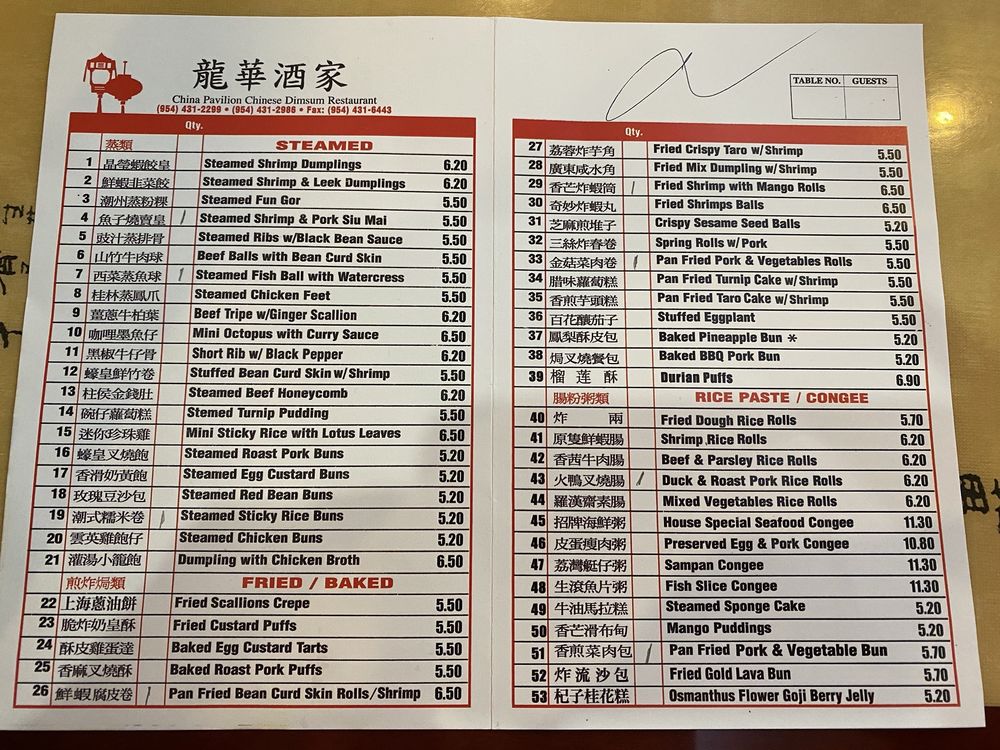 龍華酒家
China Pavilion Chinese Dimsum Restaurant
(954) 431-2299 • (954) 431-2986 • Fax: (954) 431-6443
Qty.
蒸類 STEAMED
1 晶瑩蝦餃皇 Steamed Shrimp Dumplings 6.20
2 鮮蝦韭菜餃 Steamed Shrimp & Leek Dumplings 6.20
3 潮州蒸粉粿 Steamed Fun Gor 5.50
4 魚子燒賣皇 / Steamed Shrimp & Pork Siu Mai 5.50
5 豉汁蒸排骨 Steamed Ribs w/Black Bean Sauce 5.50
6 山竹牛肉球 Beef Balls with Bean Curd Skin 5.50
7 西菜蒸魚球 / Steamed Fish Ball with Watercress 5.50
8 桂林蒸鳳爪 Steamed Chicken Feet 5.50
9 薑蔥牛柏葉 Beef Tripe w/Ginger Scallion 6.20
10 咖哩墨魚仔 Mini Octopus with Curry Sauce 6.50
11 黑椒牛仔骨 Short Rib w/ Black Pepper 6.20
12 蠔皇鮮竹卷 Stuffed Bean Curd Skin w/Shrimp 5.50
13 柱侯金錢肚 Steamed Beef Honeycomb 6.20
14 碗仔蘿蔔糕 Stemed Turnip Pudding 5.50
15 迷你珍珠雞 Mini Sticky Rice with Lotus Leaves 6.50
16 蠔皇叉燒飽 Steamed Roast Pork Buns 5.20
17 香滑奶黃飽 Steamed Egg Custard Buns 5.20
18 玫瑰豆沙包 Steamed Red Bean Buns 5.20
19 潮式糯米卷 / Steamed Sticky Rice Buns 5.20
20 雲英雞飽仔 Steamed Chicken Buns 5.20
21 灌湯小籠飽 Dumpling with Chicken Broth 6.50
煎炸焗類 FRIED / BAKED
22 上海蔥油餅 Fried Scallions Crepe 5.50
23 脆炸奶皇酥 Fried Custard Puffs 5.50
24 酥皮雞蛋達 Baked Egg Custard Tarts 5.50
25 香麻叉燒酥 Baked Roast Pork Puffs 5.50
26 鮮蝦腐皮卷 / Pan Fried Bean Curd Skin Rolls/Shrimp 6.50
TABLE NO. GUESTS
Qty.
27 荔蓉炸芋角 Fried Crispy Taro w/Shrimp 5.50
28 廣東咸水角 Fried Mix Dumpling w/Shrimp 5.50
29 香芒炸蝦筒 / Fried Shrimp with Mango Rolls 6.50
30 奇妙炸蝦丸 Fried Shrimps Balls 6.50
31 芝麻煎堆子 Crispy Sesame Seed Balls 5.20
32 三絲炸春卷 Spring Rolls w/Pork 5.50
33 金菇菜肉卷 / Pan Fried Pork & Vegetables Rolls 5.50
34 腊味蘿蔔糕 Pan Fried Turnip Cake w/Shrimp 5.50
35 香煎芋頭糕 Pan Fried Taro Cake w/Shrimp 5.50
36 百花釀茄子 Stuffed Eggplant 5.50
37 鳳梨酥皮包 Baked Pineapple Bun * 5.20
38 焗叉燒餐包 Baked BBQ Pork Bun 5.20
39 榴莲酥 Durian Puffs 6.90
腸粉粥類 RICE PASTE / CONGEE
40 炸兩 Fried Dough Rice Rolls 5.70
41 原隻鮮蝦腸 Shrimp Rice Rolls 6.20
42 香茜牛肉腸 Beef & Parsley Rice Rolls 6.20
43 火鴨叉燒腸 / Duck & Roast Pork Rice Rolls 6.20
44 羅漢齋素腸 Mixed Vegetables Rice Rolls 6.20
45 招牌海鮮粥 House Special Seafood Congee 11.30
46 皮蛋瘦肉粥 Preserved Egg & Pork Congee 10.80
47 荔灣艇仔粥 Sampan Congee 11.30
48 生滾魚片粥 Fish Slice Congee 11.30
49 牛油馬拉糕 Steamed Sponge Cake 5.20
50 香芒滑布甸 Mango Puddings 5.20
51 香煎菜肉包 / Pan Fried Pork & Vegetable Bun 5.70
52 炸流沙包 Fried Gold Lava Bun 5.70
53 杞子桂花糕 Osmanthus Flower Goji Berry Jelly 5.20